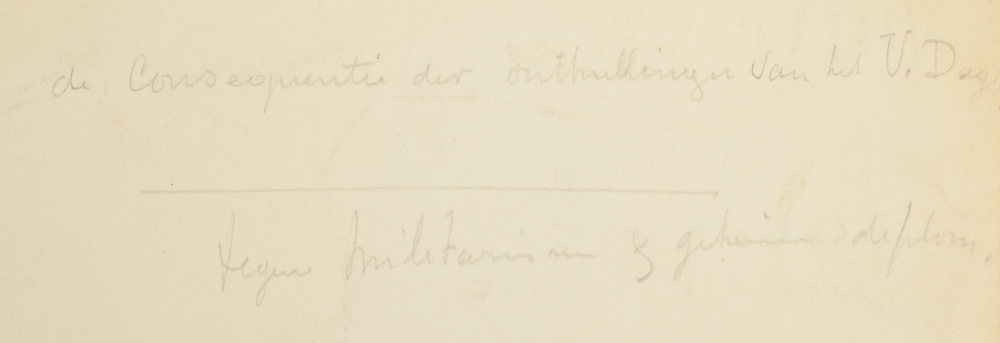 de Consequentie der onthullingen van het V. Dag
tegen militarism & geheime diplom.